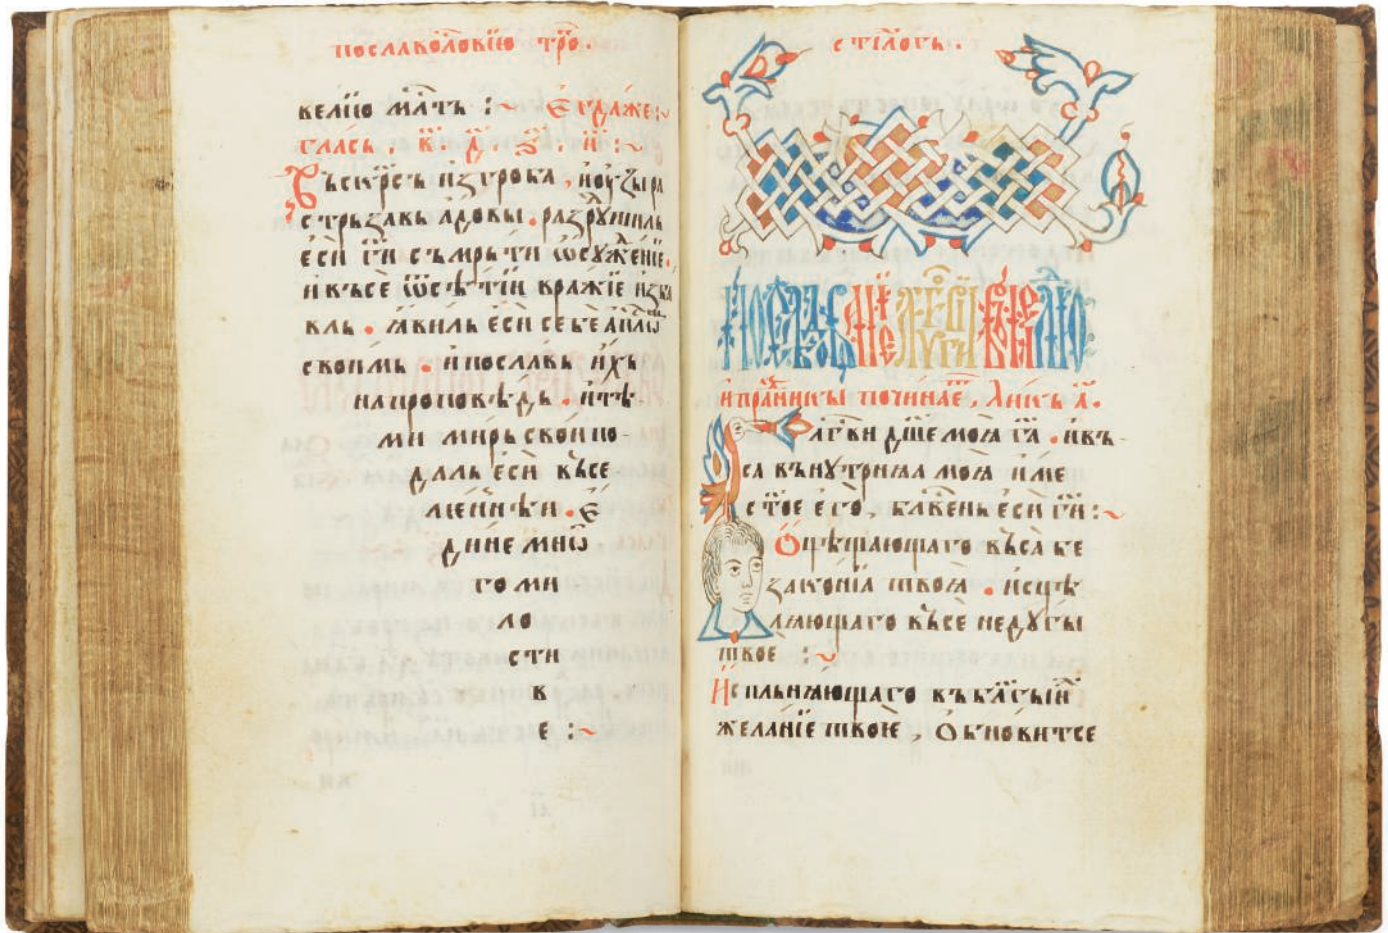 послаⷡ҇ословїю трⷪ҇
велїю млⷭ҇ть :~ Єгдаже :~
гласъ . в҃. д҃. ѕ҃. и҃ :~
Въскрⷭ҇ъ из гроба , и оузы ра
стрьзавь адовы . раздрꙋшиль
еси ги҃ съмрьти ѡсꙋжⷣенїе .
и вьсе ѿ сѣтїи вражїе изба
вль . ꙗвиль еси себе апⷭ҇лѡⷨ
своимь . и пославь ихь
на проповѣдь . и тѣ
ми мирь свои по-
даль еси вьсе
лѥннѣи . є
дине мнѡ
го ми
ло
сти
в
е :~
стїлогъ .
и праⷥ҇дникы почина̾е , Антⷩ҇ъ а҃ .
лгⷭ҇ви дш҃е моꙗ га҃ . и въ-
са вънутрнꙗа моꙗ име
с҃тое его , блⷭ҇вень еси ги҃ :~
Оцѣщающаго въса бе
законїа твоꙗ . исцѣ
лꙗющаго вьсе недꙋгы
твое :~
Исплънꙗющаго въ блг҃ыиⷯ
желанїе твоѥ , Обновитсе